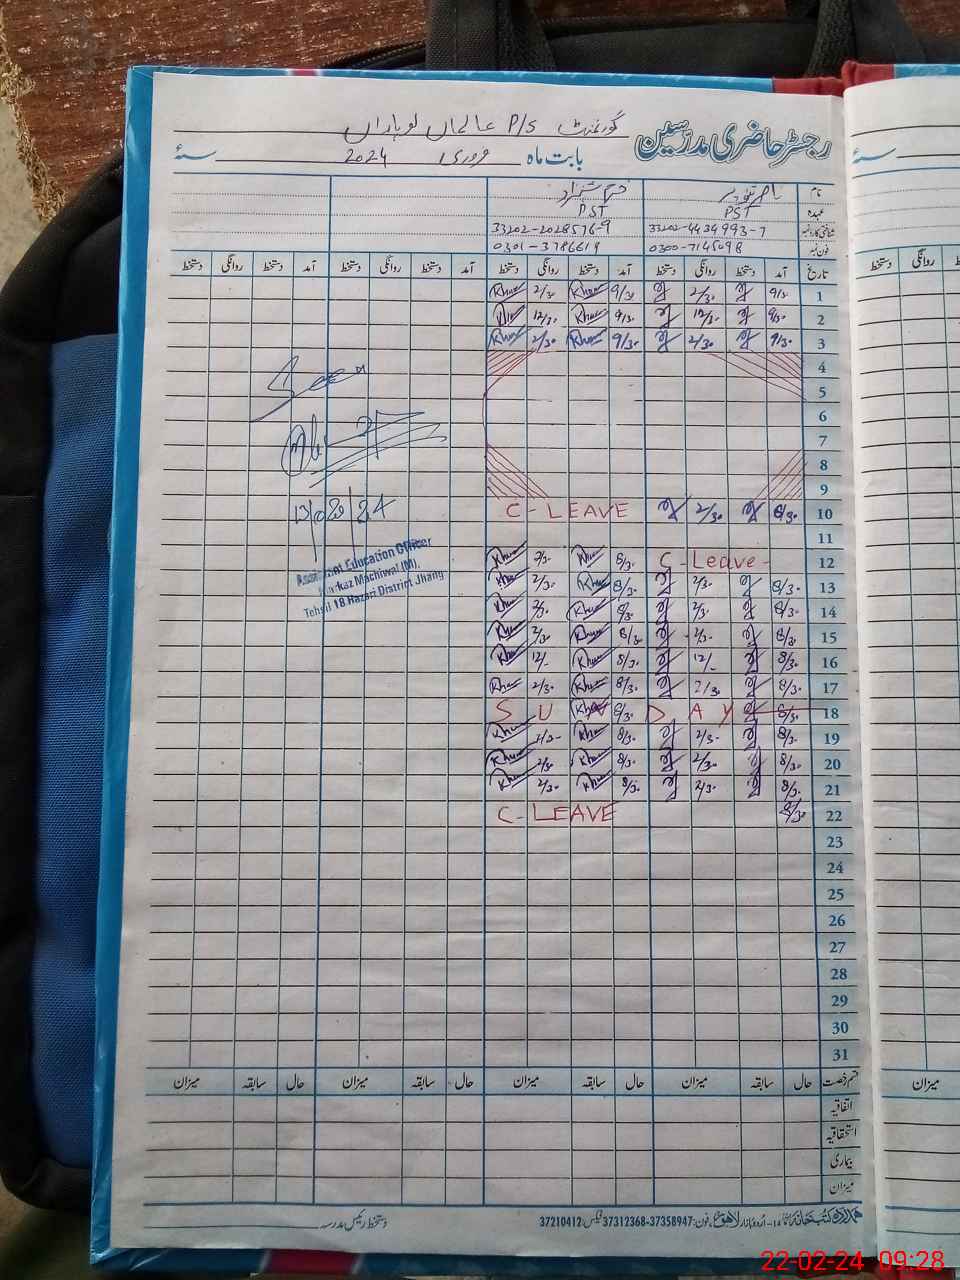 رجسٹر حاضری مدرسین گورنمنٹ P/S عالماں لوہاراں
بابت ماہ فروری 2024 سنہ
نام ناصر تنویر خرم شہزاد
عہدہ PST PST
شناختی کارڈ نمبر 33202-4434993-7 33202-2028576-9
فون نمبر 0300-7145098 0301-3786619
تاریخ آمد دستخط روانگی دستخط آمد دستخط روانگی دستخط آمد دستخط روانگی دستخط آمد دستخط روانگی دستخط
1 9/30 2/30 9/30 Khurram 2/30
2 9/30 12/30 9/30 12/30
3 9/30 2/30 9/30 2/30
4
5
6
7
8
9
10 8/30 2/30 C-LEAVE
11
12 C-Leave 8/30 2/30
13 8/30 2/30 8/30 2/30
14 8/30 2/30 8/30 2/30
15 8/30 2/30 8/30 2/30
16 8/30 12/- 8/30 12/-
17 8/30 2/30 8/30 2/30
18 SUNDAY 8/30 8/30
19 8/30 2/30 8/30 2/30
20 8/30 2/30 8/30 2/30
21 8/30 2/30 8/30 2/30
22 8/30 C-LEAVE
23
24
25
26
27
28
29
30
31
Seen
Assistant Education Officer
Markaz Machiwal (M),
Tehsil 18 Hazari District Jhang
قسم رخصت حال سابقہ میزان حال سابقہ میزان حال سابقہ میزان حال سابقہ میزان
اتفاقیہ
استحقاقیہ
بیماری
میزان
ہمدرد کتب خانہ اردو بازار لاہور فون: 37358947-37312368 فیکس: 37210412 دستخط رئیس مدرسہ
دستخط روانگی
سنہ
میزان
22-02-24 09:28